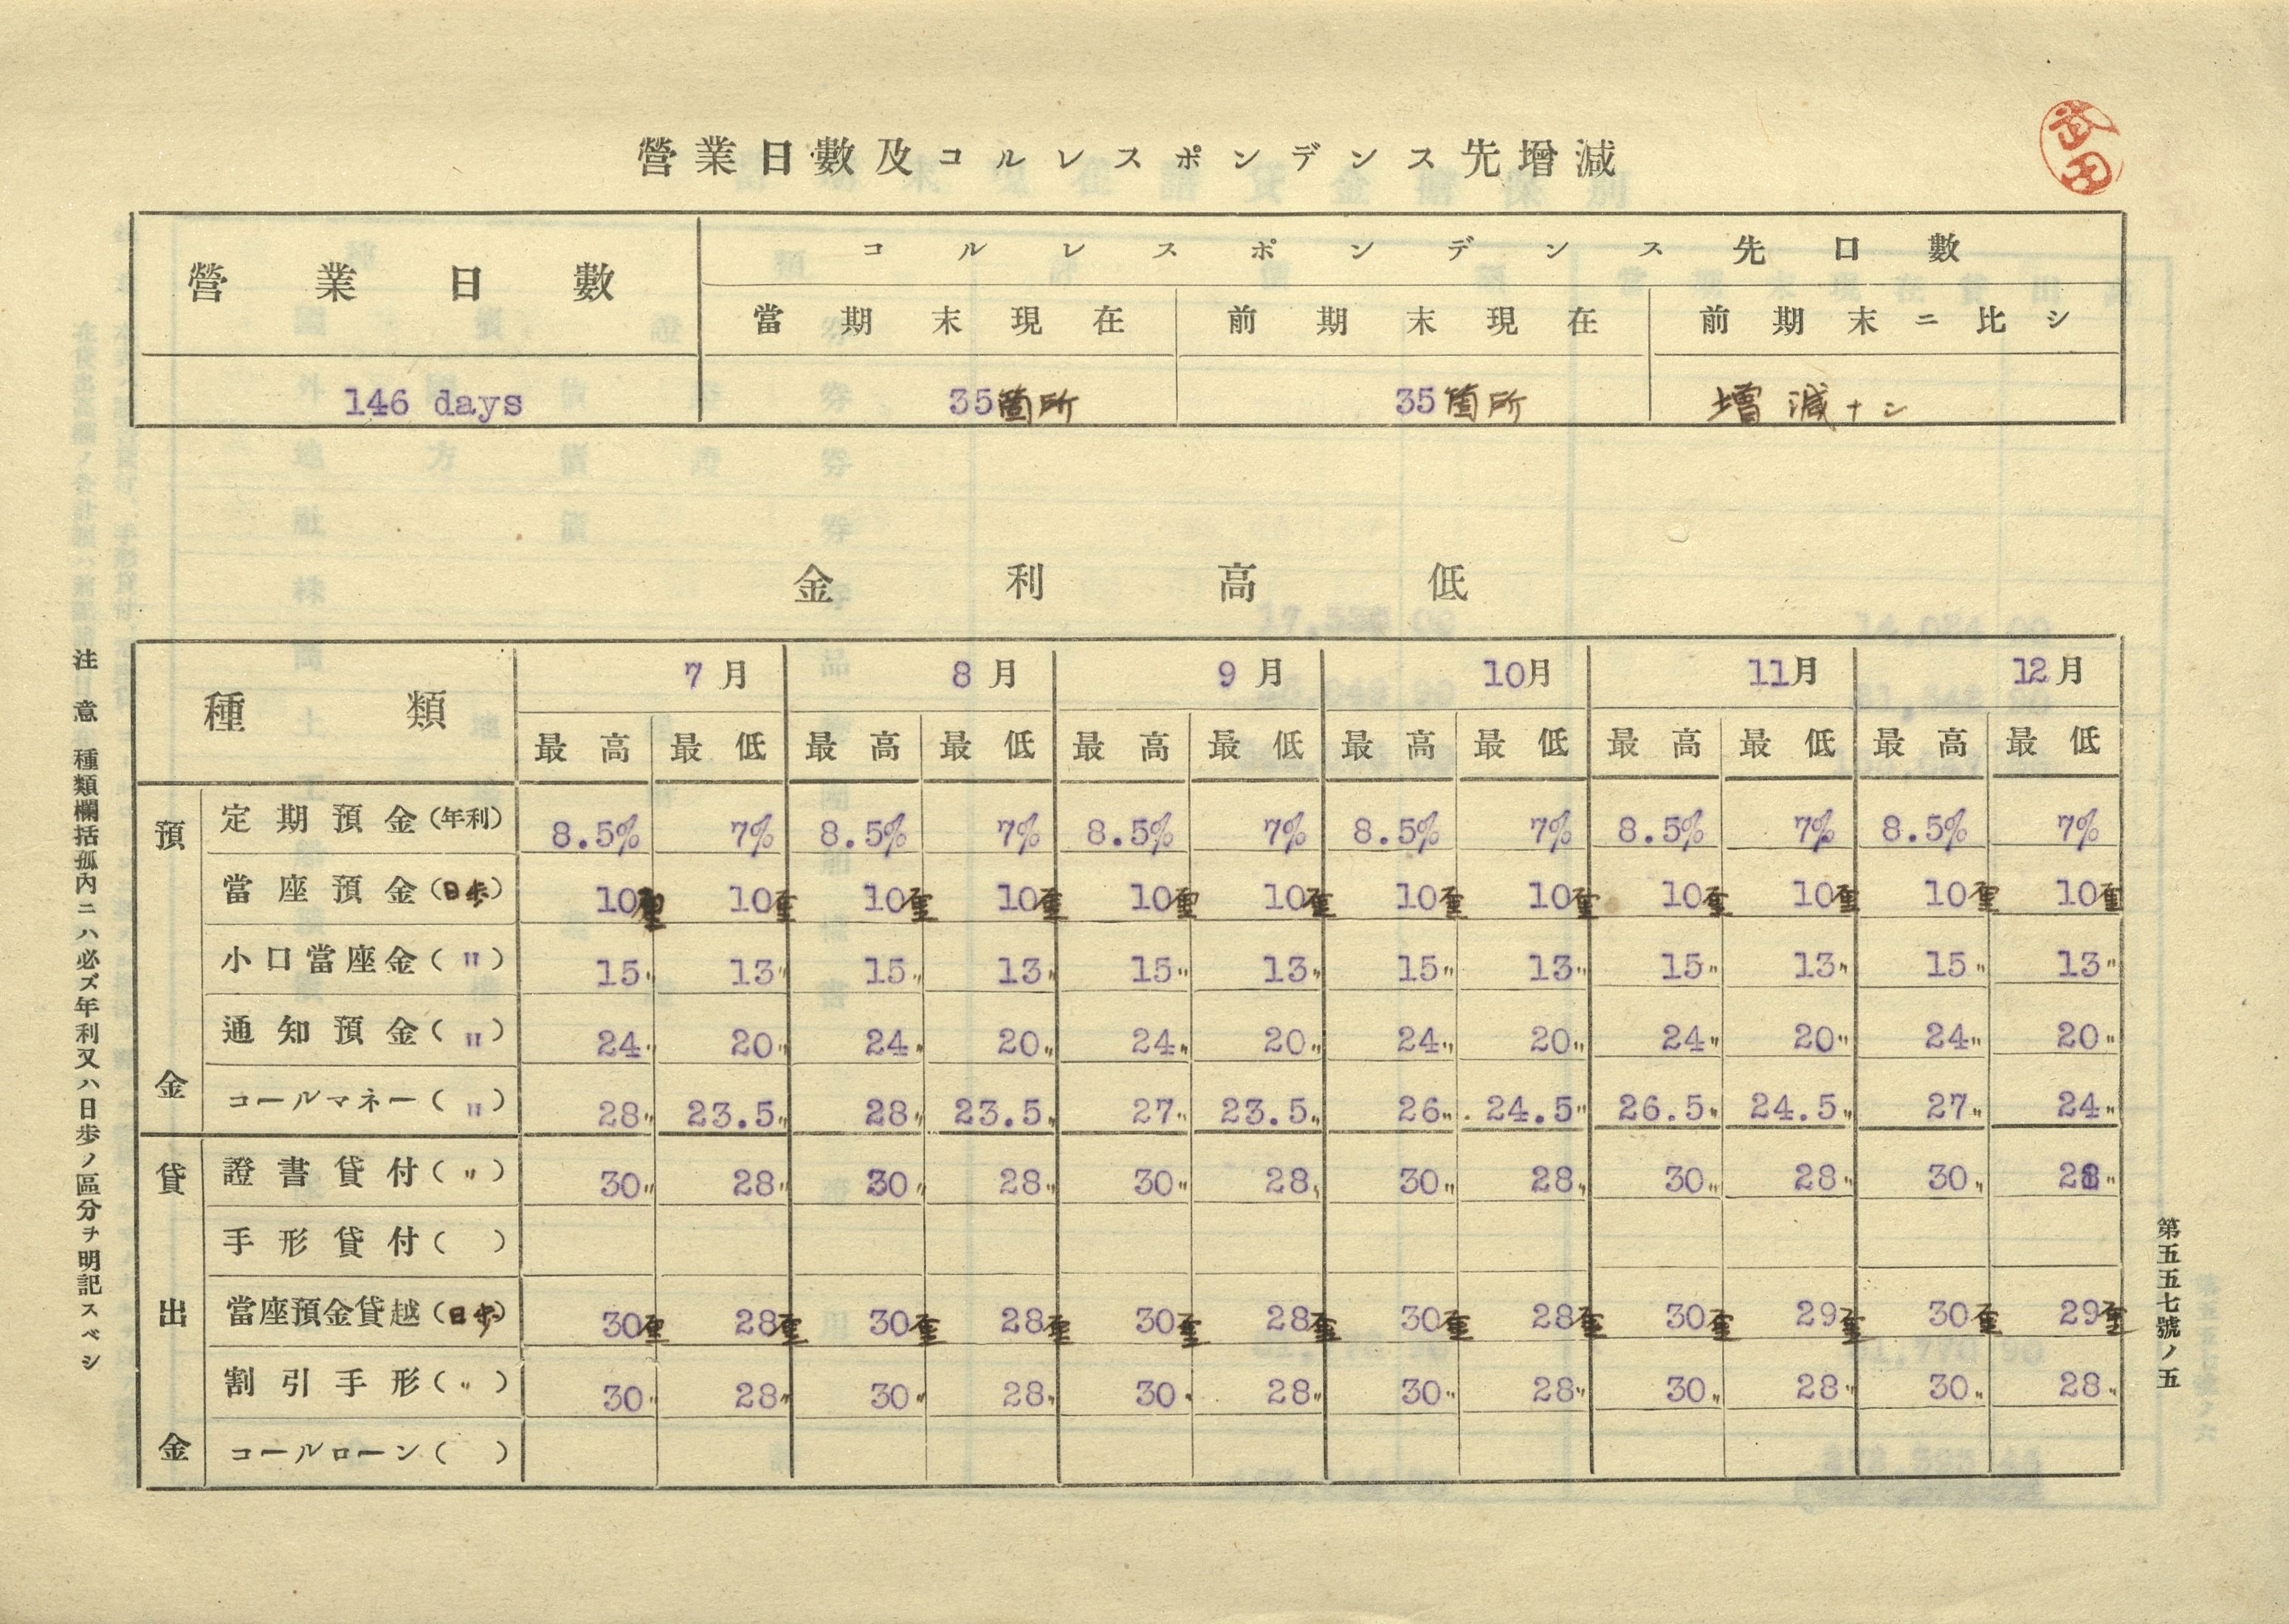 營業日數及コルレスポンデンス先增減
武田
營業日數 コルレスポンデンス先口數
當期末現在 前期末現在 前期末ニ比シ
146 days 35箇所 35箇所 增減ナシ
金利高低
種類 7月 8月 9月 10月 11月 12月
最高 最低 最高 最低 最高 最低 最高 最低 最高 最低 最高 最低
預金
定期預金(年利) 8.5% 7% 8.5% 7% 8.5% 7% 8.5% 7% 8.5% 7% 8.5% 7%
當座預金(日歩) 10厘 10厘 10厘 10厘 10厘 10厘 10厘 10厘 10厘 10厘 10厘 10厘
小口當座金(〃) 15〃 13〃 15〃 13〃 15〃 13〃 15〃 13〃 15〃 13〃 15〃 13〃
通知預金(〃) 24〃 20〃 24〃 20〃 24〃 20〃 24〃 20〃 24〃 20〃 24〃 20〃
コールマネー(〃) 28〃 23.5〃 28〃 23.5〃 27〃 23.5〃 26〃 24.5〃 26.5〃 24.5〃 27〃 24〃
貸出金
證書貸付(〃) 30〃 28〃 30〃 28〃 30〃 28〃 30〃 28〃 30〃 28〃 30〃 28〃
手形貸付( )
當座預金貸越(日歩) 30厘 28厘 30厘 28厘 30厘 28厘 30厘 28厘 30厘 29厘 30厘 29厘
割引手形(〃) 30〃 28〃 30〃 28〃 30〃 28〃 30〃 28〃 30〃 28〃 30〃 28〃
コールローン( )
注意 種類欄括孤內ニハ必ズ年利又ハ日歩ノ區分ヲ明記スベシ
第五五七號ノ五